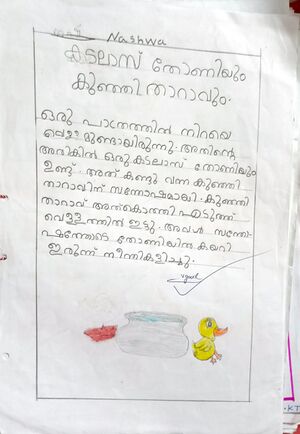 Nashwa
കടലാസ് തോണിയും
കുഞ്ഞി താറാവും.
ഒരു പാത്രത്തിൽ നിറയെ
വെള്ള മുണ്ടായിരുന്നു. അതിന്റെ
അരികിൽ ഒരു കടലാസ് തോണിയും
ഉണ്ട്. അത് കണ്ടു വന്ന കുഞ്ഞി
താറാവിന് സന്തോഷമായി. കുഞ്ഞി
താറാവ് അത് കൊത്തി എടുത്ത്
വെള്ളത്തിൽ ഇട്ടു. അവൾ സന്തോ
ഷത്തോടെ തോണിയിൽ കയറി
ഇരുന്ന് നീന്തി കളിച്ചു.